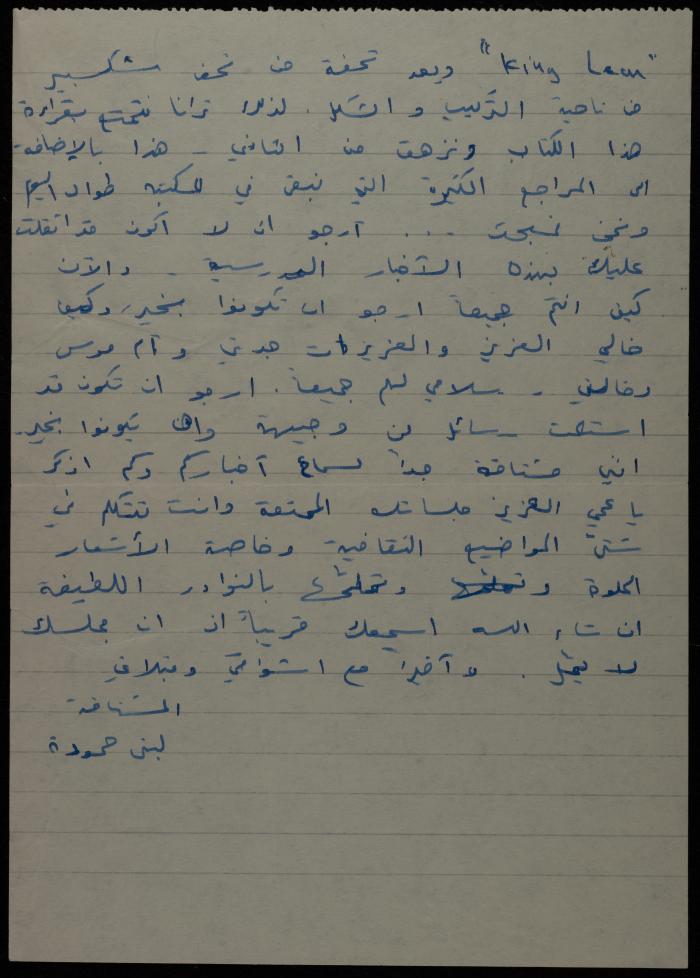 "King Lear" ويعد تحفة من تحف شكسبير
من ناحية التركيب والشكل. لذلك ترانا نتمتع بقراءة
هذا الكتاب ونزهق من الثاني - هذا بالإضافة
الى المراجع الكثيرة التي نبقى في المكتبة طوال اليوم
ونحن نبحث ... أرجو ان لا أكون قد اثقلت
عليك بهذه الأخبار المدرسية - والآن
كيف انتم جميعاً ارجو ان تكونوا بخير، وكيف
خالي العزيز والعزيزات جدتي و أم موسى
وخالتي - سلامي لهم جميعاً. ارجو ان تكون قد
استلمت رسائل من وجيهة وان يكونوا بخير.
انني مشتاقة جداً لسماع أخباركم وكم اذكر
يا عمي العزيز جلساتك الممتعة وانت تتكلم في
شتى المواضيع الثقافية وخاصة الأشعار
الحلوة و وتملحها بالنوادر اللطيفة
ان شاء الله اسمعك قريباً اذ ان مجلسك
لا يمل. وأخيراً مع اشواقي وقبلاتي
المشتاقة
لبنى حمودة